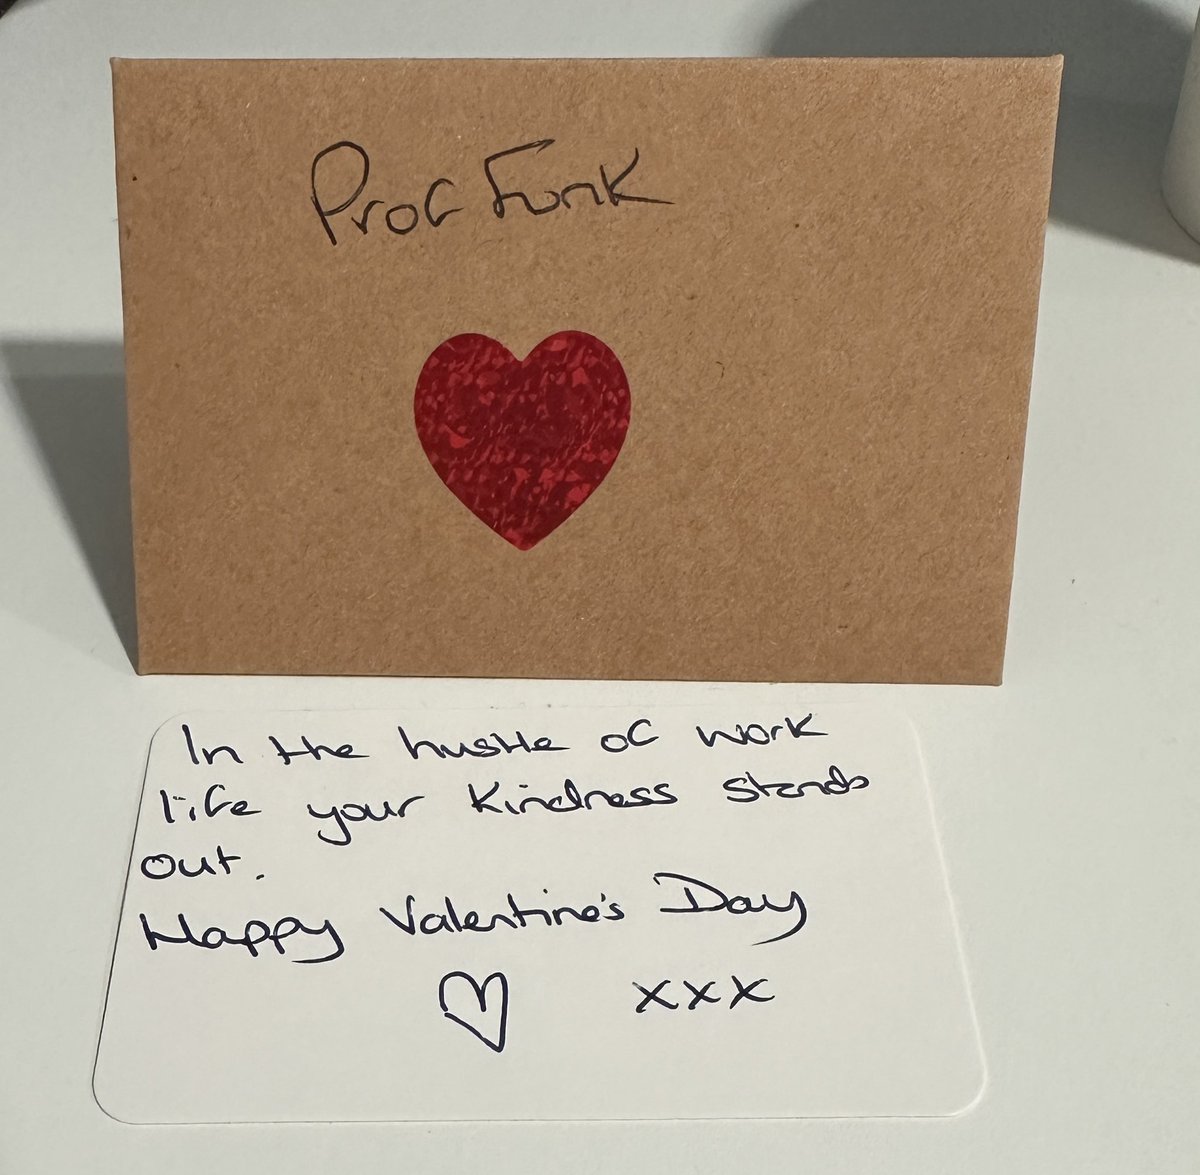 Prof Funk
In the hustle of work
life your kindness stands
out.
Happy Valentine's Day
xxx